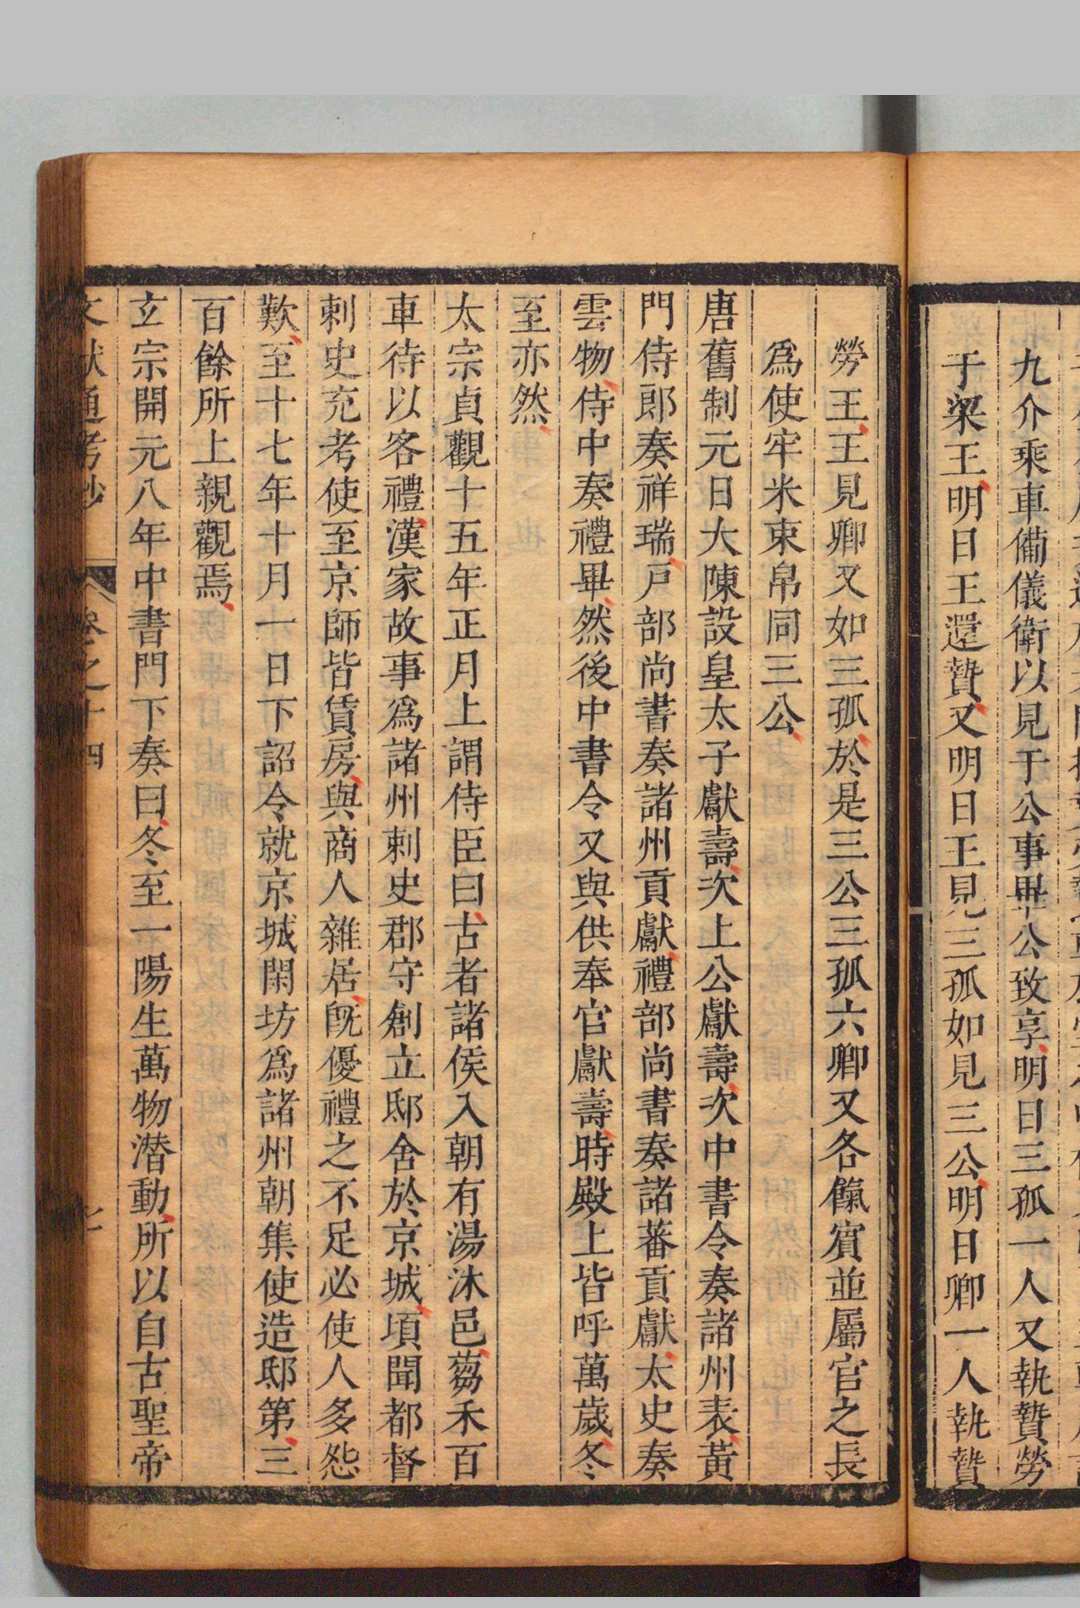 九介乘車備儀衛以見于公事畢公致享明日三孤一人又執贄勞
于梁王明日王還贄又明日王見三孤如見三公明日卿一人執贄
勞王王見卿又如三孤於是三公三孤六卿又各餼賓並屬官之長
爲使牢米束帛同三公
唐舊制元日大陳設皇太子獻壽次上公獻壽次中書令奏諸州表黃
門侍郎奏祥瑞戸部尚書奏諸州貢獻禮部尚書奏諸蕃貢獻太史奏
雲物侍中奏禮畢然後中書令又與供奉官獻壽時殿上皆呼萬歲冬
至亦然
太宗貞觀十五年正月上謂侍臣曰古者諸侯入朝有湯沐邑蒭禾百
車待以客禮漢家故事爲諸州刺史郡守創立邸舍於京城頃聞都督
刺史充考使至京師皆賃房與商人雜居旣優禮之不足必使人多怨
歎至十七年十月一日下詔令就京城閑坊爲諸州朝集使造邸第三
百餘所上親觀焉
玄宗開元八年中書門下奏曰冬至一陽生萬物潜動所以自古聖帝
文獻通考鈔 卷之十四 七